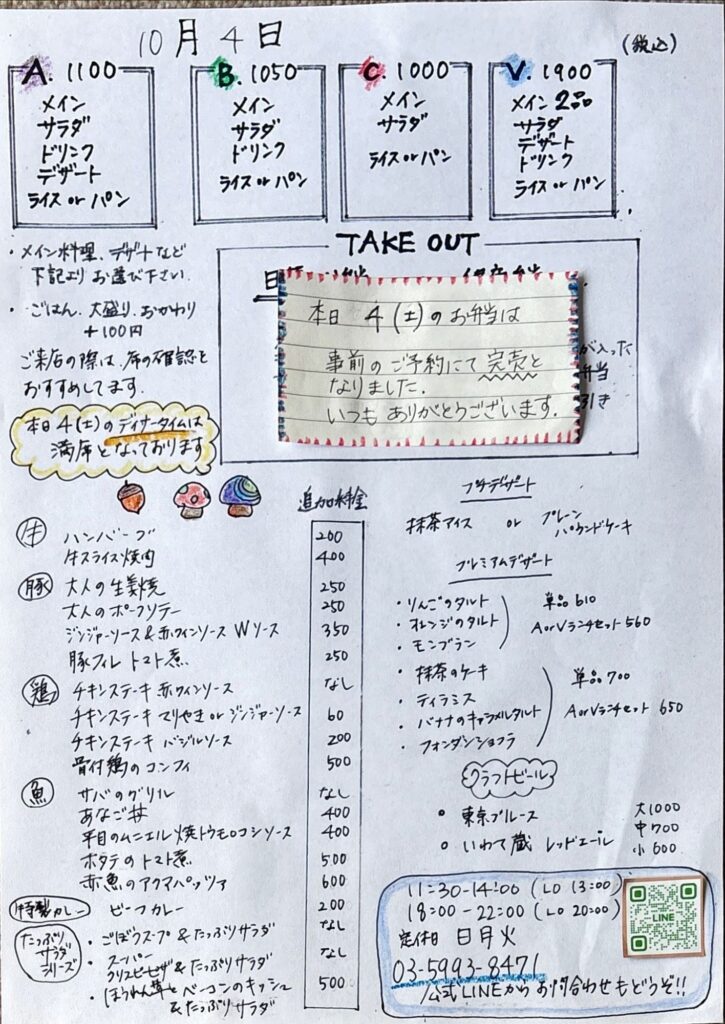 10月4日
(税込)
A. 1100
メイン
サラダ
ドリンク
デザート
ライス or パン
B. 1050
メイン
サラダ
ドリンク
ライス or パン
C. 1000
メイン
サラダ
ライス or パン
V. 1900
メイン 2品
サラダ
デザート
ドリンク
ライス or パン
・メイン料理、デザートなど
下記よりお選び下さい
・ごはん.大盛り.おかわり
+100円
ご来店の際は、席の確認を
おすすめしてます.
本日4(土)のディナータイムは
満席となっております
TAKE OUT
本日 4(土)のお弁当は
事前のご予約にて完売と
なりました.
いつもありがとうございます.
が入った
弁当
引き
追加料金
牛
ハンバーグ 200
牛スライス焼肉 400
豚
大人の生姜焼 250
大人のポークソテー 250
ジンジャーソース&赤ワインソース Wソース 350
豚フィレ トマト煮 250
鶏
チキンステーキ 赤ワインソース なし
チキンステーキ てりやき or ジンジャーソース 60
チキンステーキ バジルソース 200
骨付鶏のコンフィ 500
魚
サバのグリル なし
あなご丼 400
平目のムニエル 焼トウモロコシソース 400
ホタテのトマト煮 500
赤魚のアクアパッツァ 600
特製カレー ビーフカレー 200
たっぷり
サラダ
シリーズ
・ごぼうスープ & たっぷりサラダ なし
・スーパー
クリスピーピザ & たっぷりサラダ なし
・ほうれん草とベーコンのキッシュ 500
& たっぷりサラダ
プチデザート
抹茶アイス or プレーン
パウンドケーキ
プレミアムデザート
・りんごのタルト
・オレンジのタルト
・モンブラン
単品 610
A or Vランチセット 560
・抹茶のケーキ
・ティラミス
・バナナのキャラメルタルト
・フォンダンショコラ
単品 700
A or Vランチセット 650
クラフトビール
○ 東京ブルース
○ いわて蔵 レッドエール
大1000
中700
小600
11:30-14:00 (LO 13:00)
18:00-22:00 (LO 20:00)
定休日 日月火
03-5993-8471
公式LINEからお問合わせもどうぞ!!
LINE